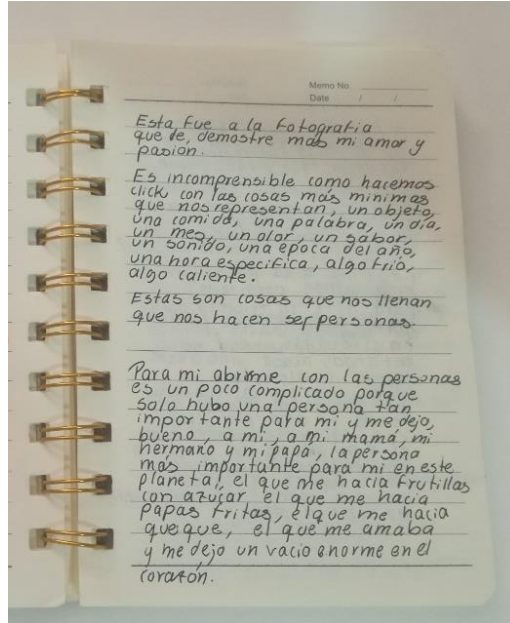 Memo No.
Date / /
Esta fue a la fotografia
que le, demostre mas mi amor y
pasion.
Es incomprensible como hacemos
click con las cosas más minimas
que nos representan, un objeto,
una comida, una palabra, un dia,
un mes, un olor, un sabor,
un sonido, una epoca del año,
una hora especifica, algo frio,
algo caliente.
Estas son cosas que nos llenan
que nos hacen ser personas.
Para mi abrirme con las personas
es un poco complicado porque
solo hubo una persona tan
importante para mi y me dejo,
bueno, a mi, a mi mamá, mi
hermano y mi papa, la persona
más importante para mi en este
planeta, el que me hacia frutillas
con azucar el que me hacia
papas fritas, el que me hacia
queque, el que me amaba
y me dejo un vacio enorme en el
corazón.